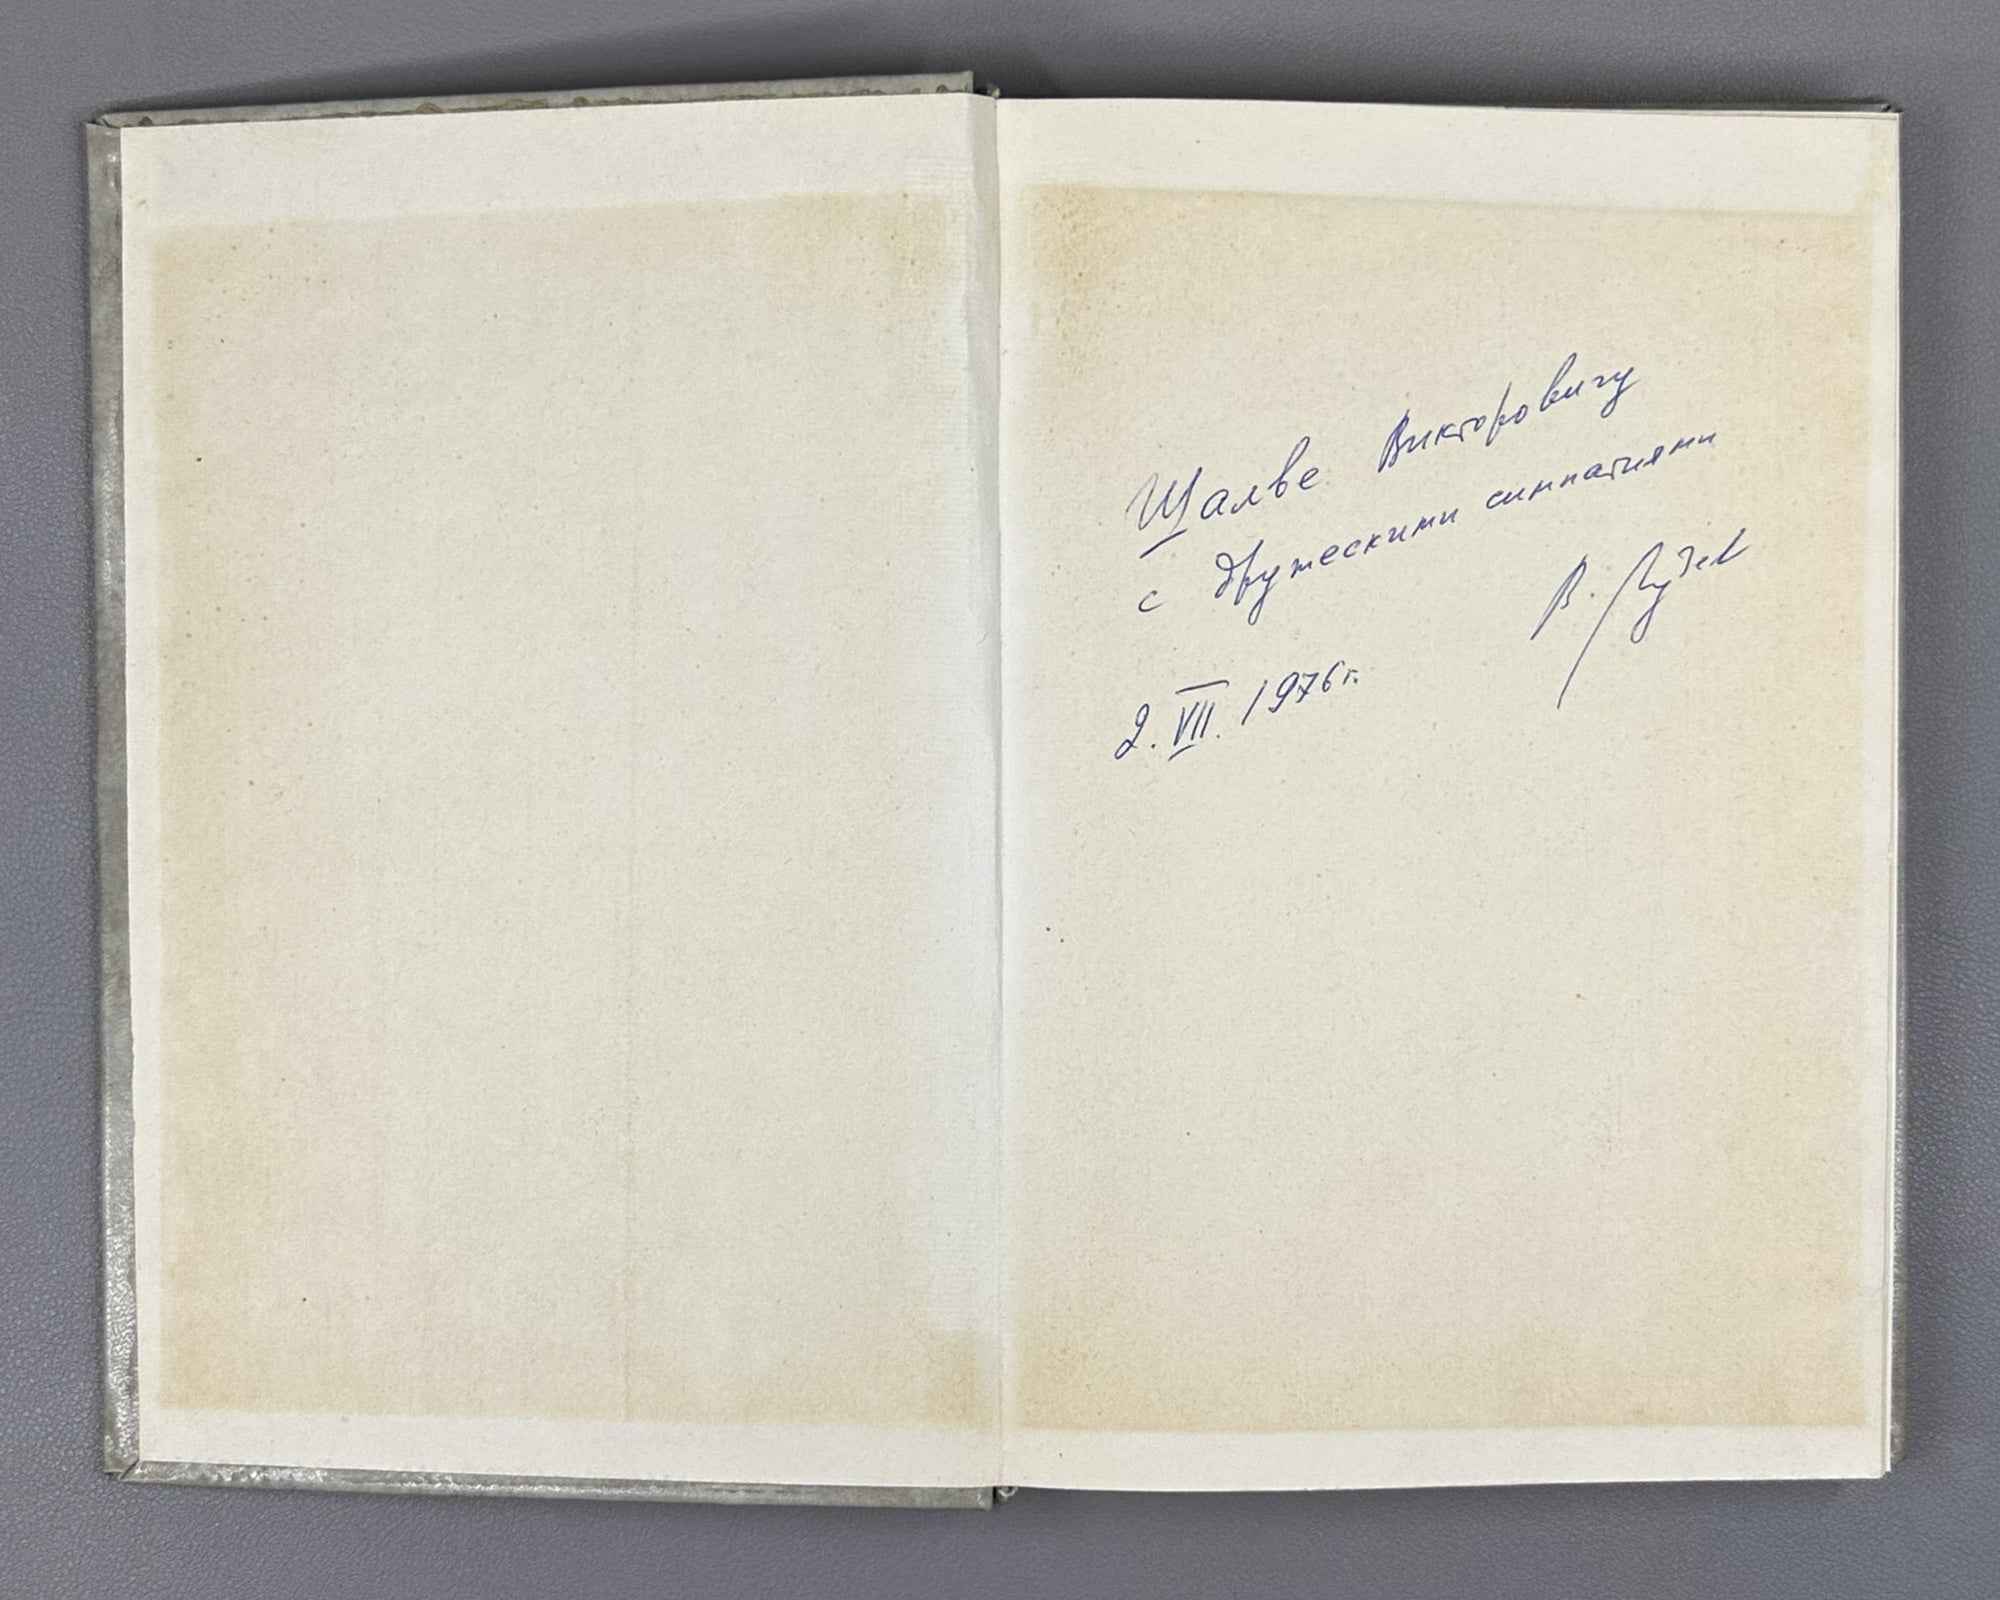 Шалве Викторовичу
с дружескими симпатиями
В.
2. VII. 1976 г.